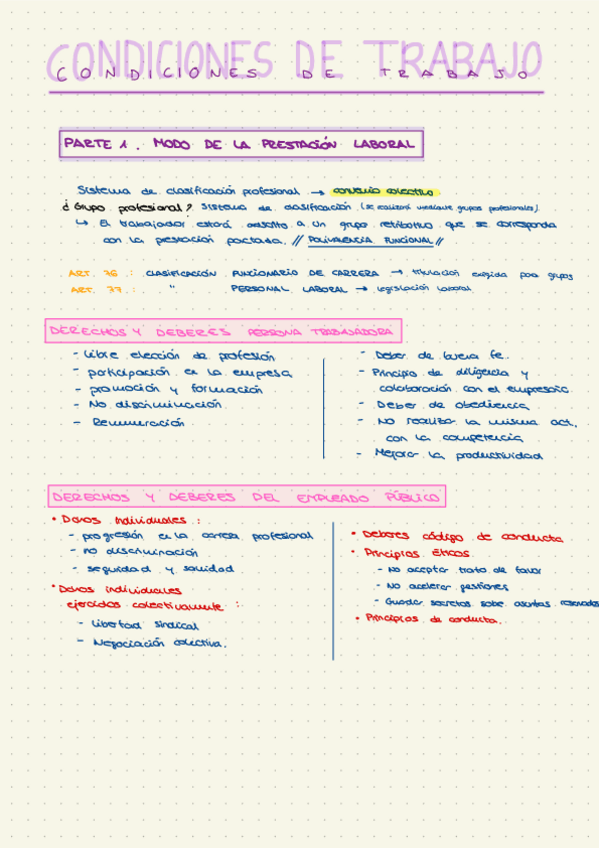 CONDICIONES DE TRABAJO
CONDICIONES DE TRABAJO
PARTE 1. MODO DE LA PRESTACIÓN LABORAL
Sistema de clasificación profesional → convenio colectivo
¿Grupo profesional? Sistema de clasificación (se realizará mediante grupos profesionales).
↳ El trabajador estará adscrito a un grupo retributivo que se corresponda
con la prestación pactada. // POLIVALENCIA FUNCIONAL //
ART. 76.: CLASIFICACIÓN FUNCIONARIO DE CARRERA → titulación exigida para grupos
ART. 77.: " PERSONAL LABORAL → legislación laboral
DERECHOS Y DEBERES PERSONA TRABAJADORA
- Libre elección de profesión
- participación en la empresa
- promoción y formación
- No discriminación
- Remuneración
- Deber de buena fe.
- Principio de diligencia y
colaboración con el empresario.
- Deber de obediencia
- No realizar la misma act.
con la competencia
- Mejorar la productividad
DERECHOS Y DEBERES DEL EMPLEADO PÚBLICO
• Dchos individuales:
- progresión en la carrera profesional
- no discriminación
- seguridad y sanidad
• Dchos individuales
ejercidos colectivamente:
- Libertad sindical
- Negociación colectiva.
• Deberes código de conducta
• Principios éticos
- No aceptar trato de favor
- No acelerar gestiones
- Guardar secretos sobre asuntos reservados
• Principios de conducta.